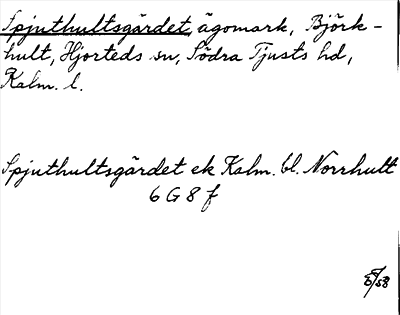 Spjuthultsgärdet, ägomark, Björk-
hult, Hjorteds sn, Södra Tjusts hd,
Kalm. l.
Spjuthultsgärdet ek Kalm. bl. Norrhult
6 G 8 f